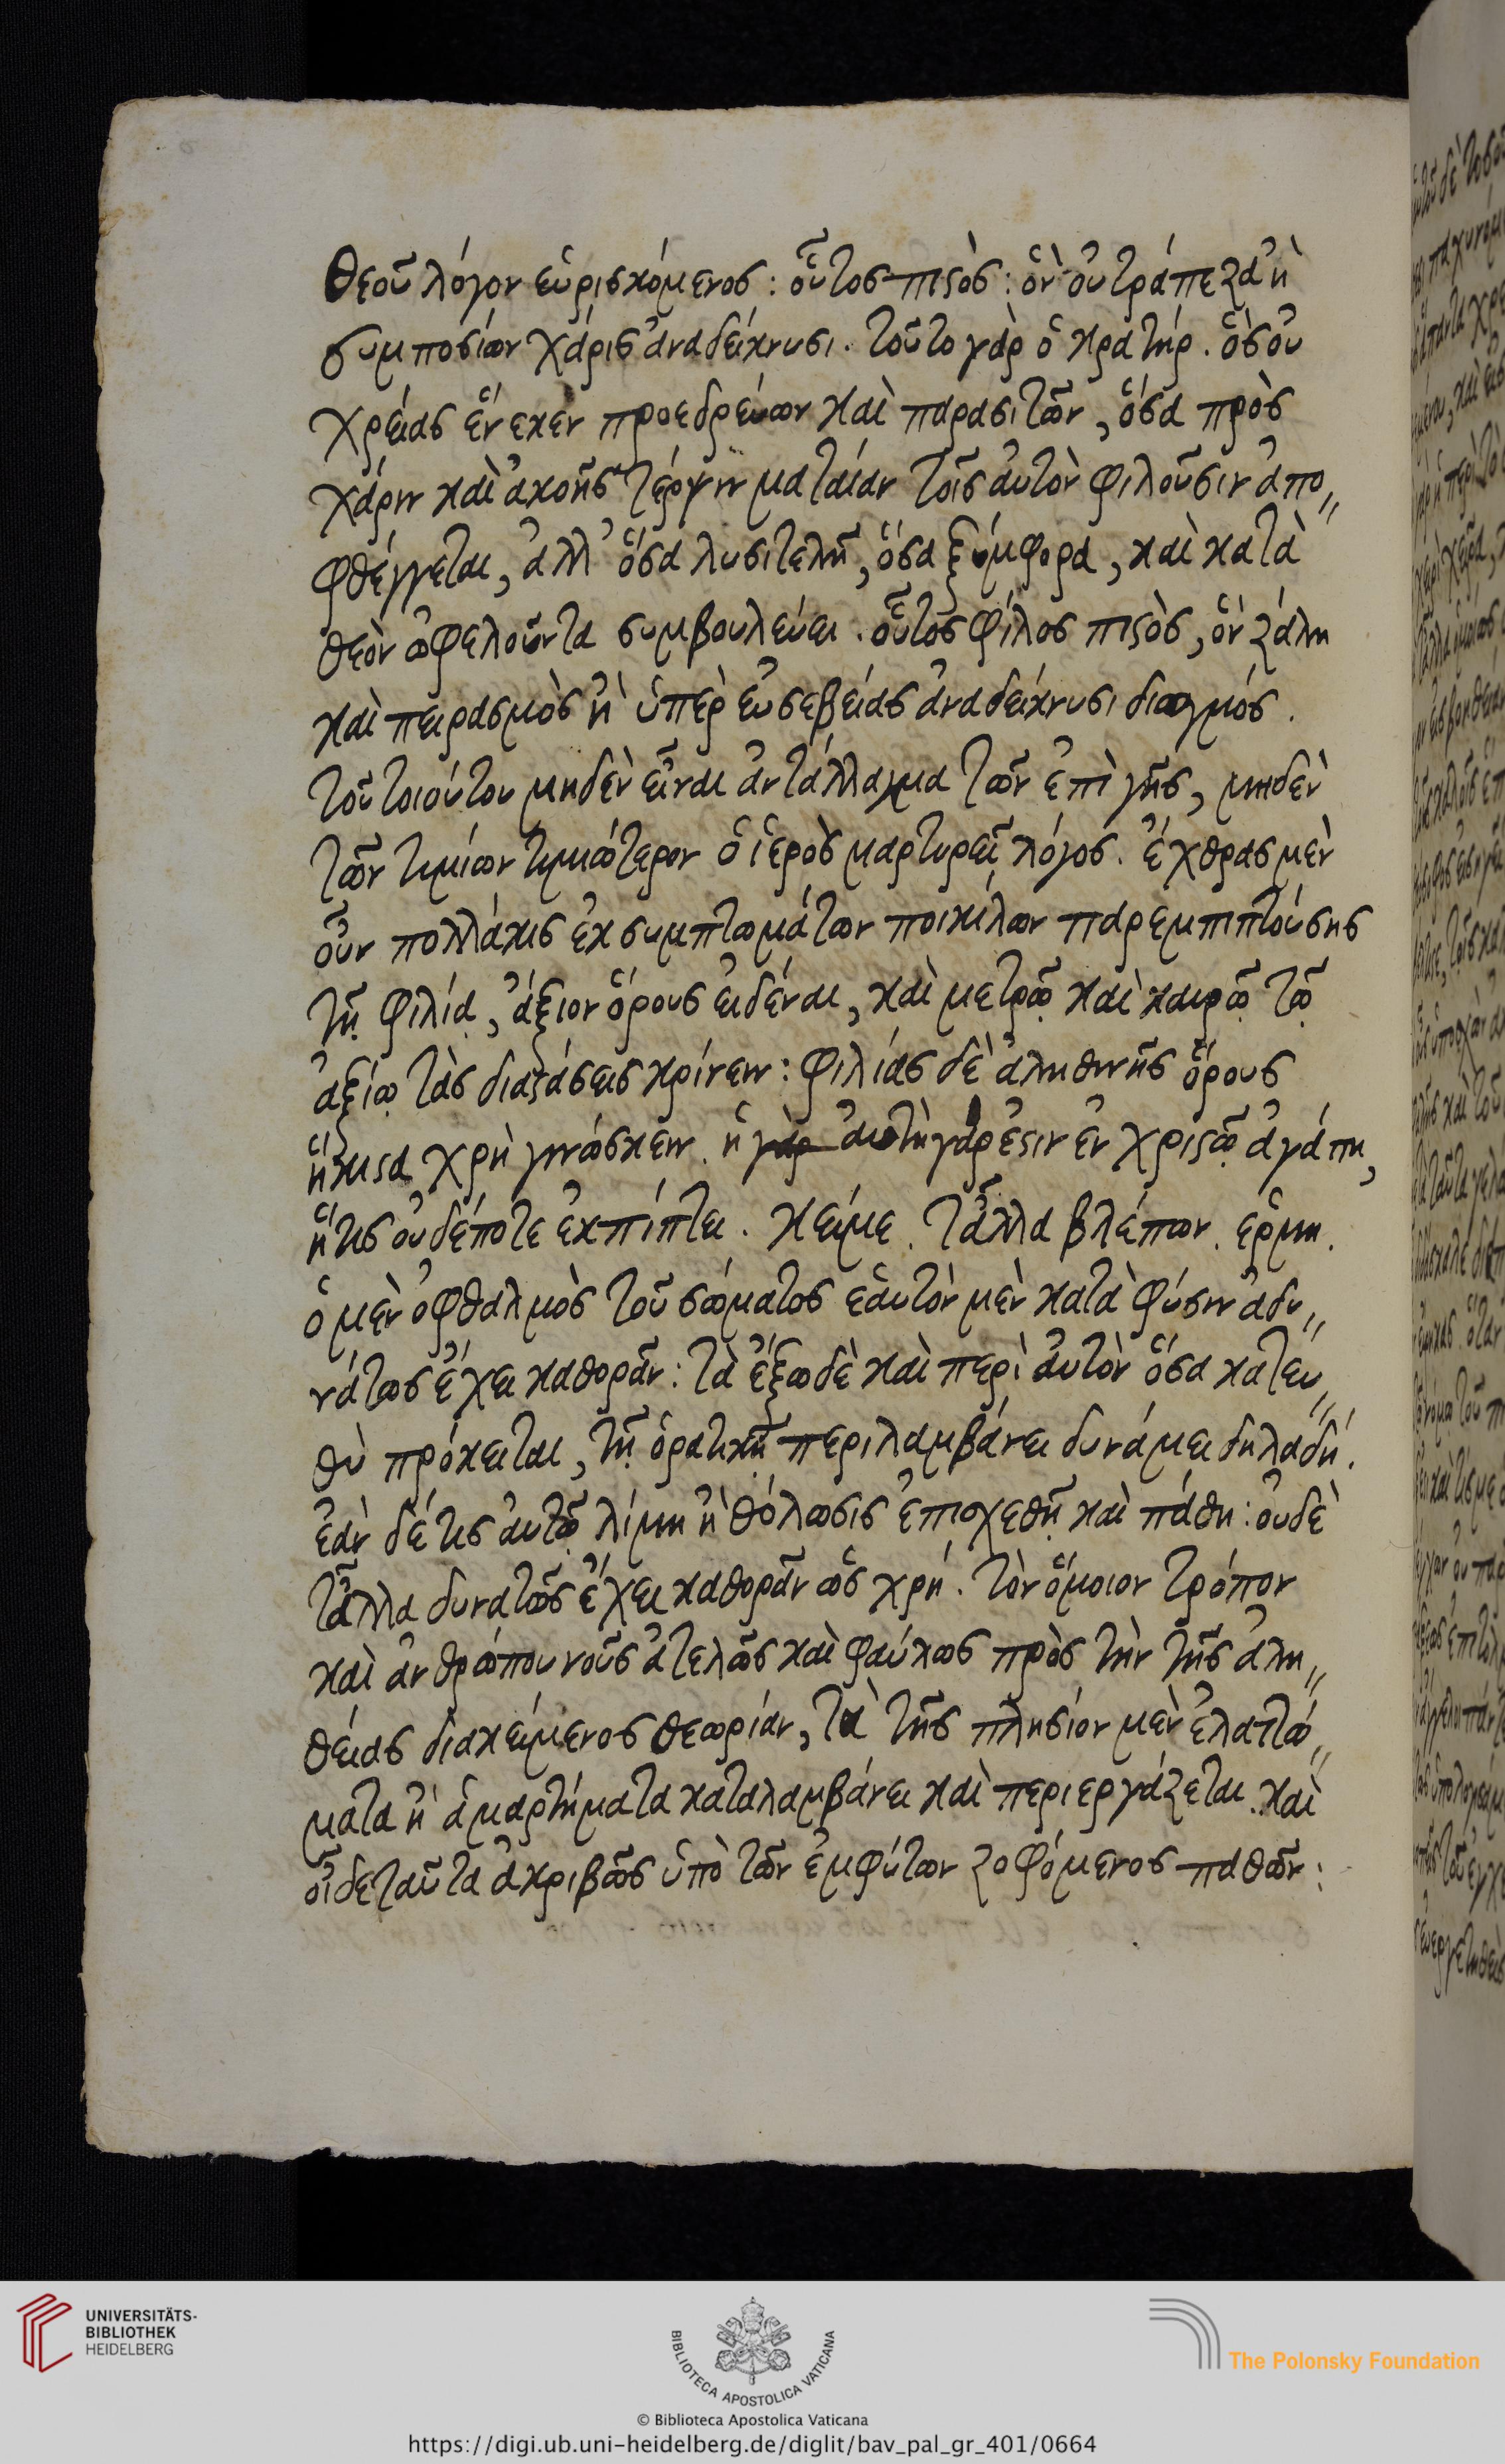 θεοῦ λόγον εὑρισκόμενος : οὗτος πιςὸς : ὃν οὐ τράπεζα ἢ
συμποσίων χάρις ἀναδείκνυσι . τοῦτο γὰρ ὁ κρατήρ . ὃς οὐ
χρείας ἕνεκεν προεδρεύων καὶ παρασιτῶν , ὅσα πρὸς
χάριν καὶ ἀκοῆς τέρψιν ματαίαν τοῖς αὐτὸν φιλοῦσιν ἀπο〃
φθέγγεται , ἀλλ’ ὅσα λυσιτελῆ , ὅσα ξύμφορα , καὶ κατὰ
θεὸν ὠφελοῦντα συμβουλεύει . οὗτος φίλος πιςὸς , ὃν ζάλη
καὶ πειρασμὸς ἢ ὑπὲρ εὐσεβείας ἀναδείκνυσι διωγμός .
τοῦ τοιούτου μηδὲν εἶναι ἀντάλλαγμα τῶν ἐπὶ γῆς , μηδὲν
τῶν τιμίων τιμιώτερον ὁ ἱερὸς μαρτυρεῖ λόγος . ἔχθρας μὲν
οὖν πολλάκις ἐκ συμπτωμάτων ποικίλων παρεμπιπτούσης
τῇ φιλίᾳ , ἄξιον ὅρους εἰδέναι , καὶ μετρῷ καὶ καιρῷ τῷ
ἀξίῳ τὰς διαςάσεις κρίνειν : φιλίας δὲ ἀληθινῆς ὅρους
ἥκιςα χρὴ γινώσκειν . ἡ γὰρ αὐτὴ γάρ ἐςιν ἐν χριςῷ ἀγάπη ,
ἥτις οὐδέποτε ἐκπίπτει . κείμε . τἄλλα βλέπων . ἑρμη .
ὁ μὲν ὀφθαλμὸς τοῦ σώματος ἑαυτὸν μὲν κατὰ φύσιν ἀδυ〃
νάτως ἔχει καθορᾶν : τὰ ἔξω δὲ καὶ περὶ αὐτὸν ὅσα κατευ〃
θὺ πρόκειται , τῇ ὁρατικῇ περιλαμβάνει δυνάμει δηλαδή .
ἐὰν δέ τις αὐτῷ λίμη ἢ θόλωσις ἐπισχεθῇ καὶ πάθη : οὐδὲ
τἄλλα δυνατῶς ἔχει καθορᾶν ὡς χρή . τὸν ὅμοιον τρόπον
καὶ ἀνθρώπου νοῦς ἀτελῶς καὶ φαύλως πρὸς τὴν τῆς ἀλη〃
θείας διακείμενος θεωρίαν , τὰ τῆς πλησίον μὲν ἐλαττώ〃
ματα ἢ ἁμαρτήματα καταλαμβάνει καὶ περιεργάζεται . καὶ
οἶδε ταῦτα ἀκριβῶς ὑπὸ τῶν ἐμφύτων ζοφόμενος παθῶν :
UNIVERSITÄTS-
BIBLIOTHEK
HEIDELBERG
BIBLIOTECA APOSTOLICA VATICANA
The Polonsky Foundation
© Biblioteca Apostolica Vaticana
https://digi.ub.uni-heidelberg.de/diglit/bav_pal_gr_401/0664